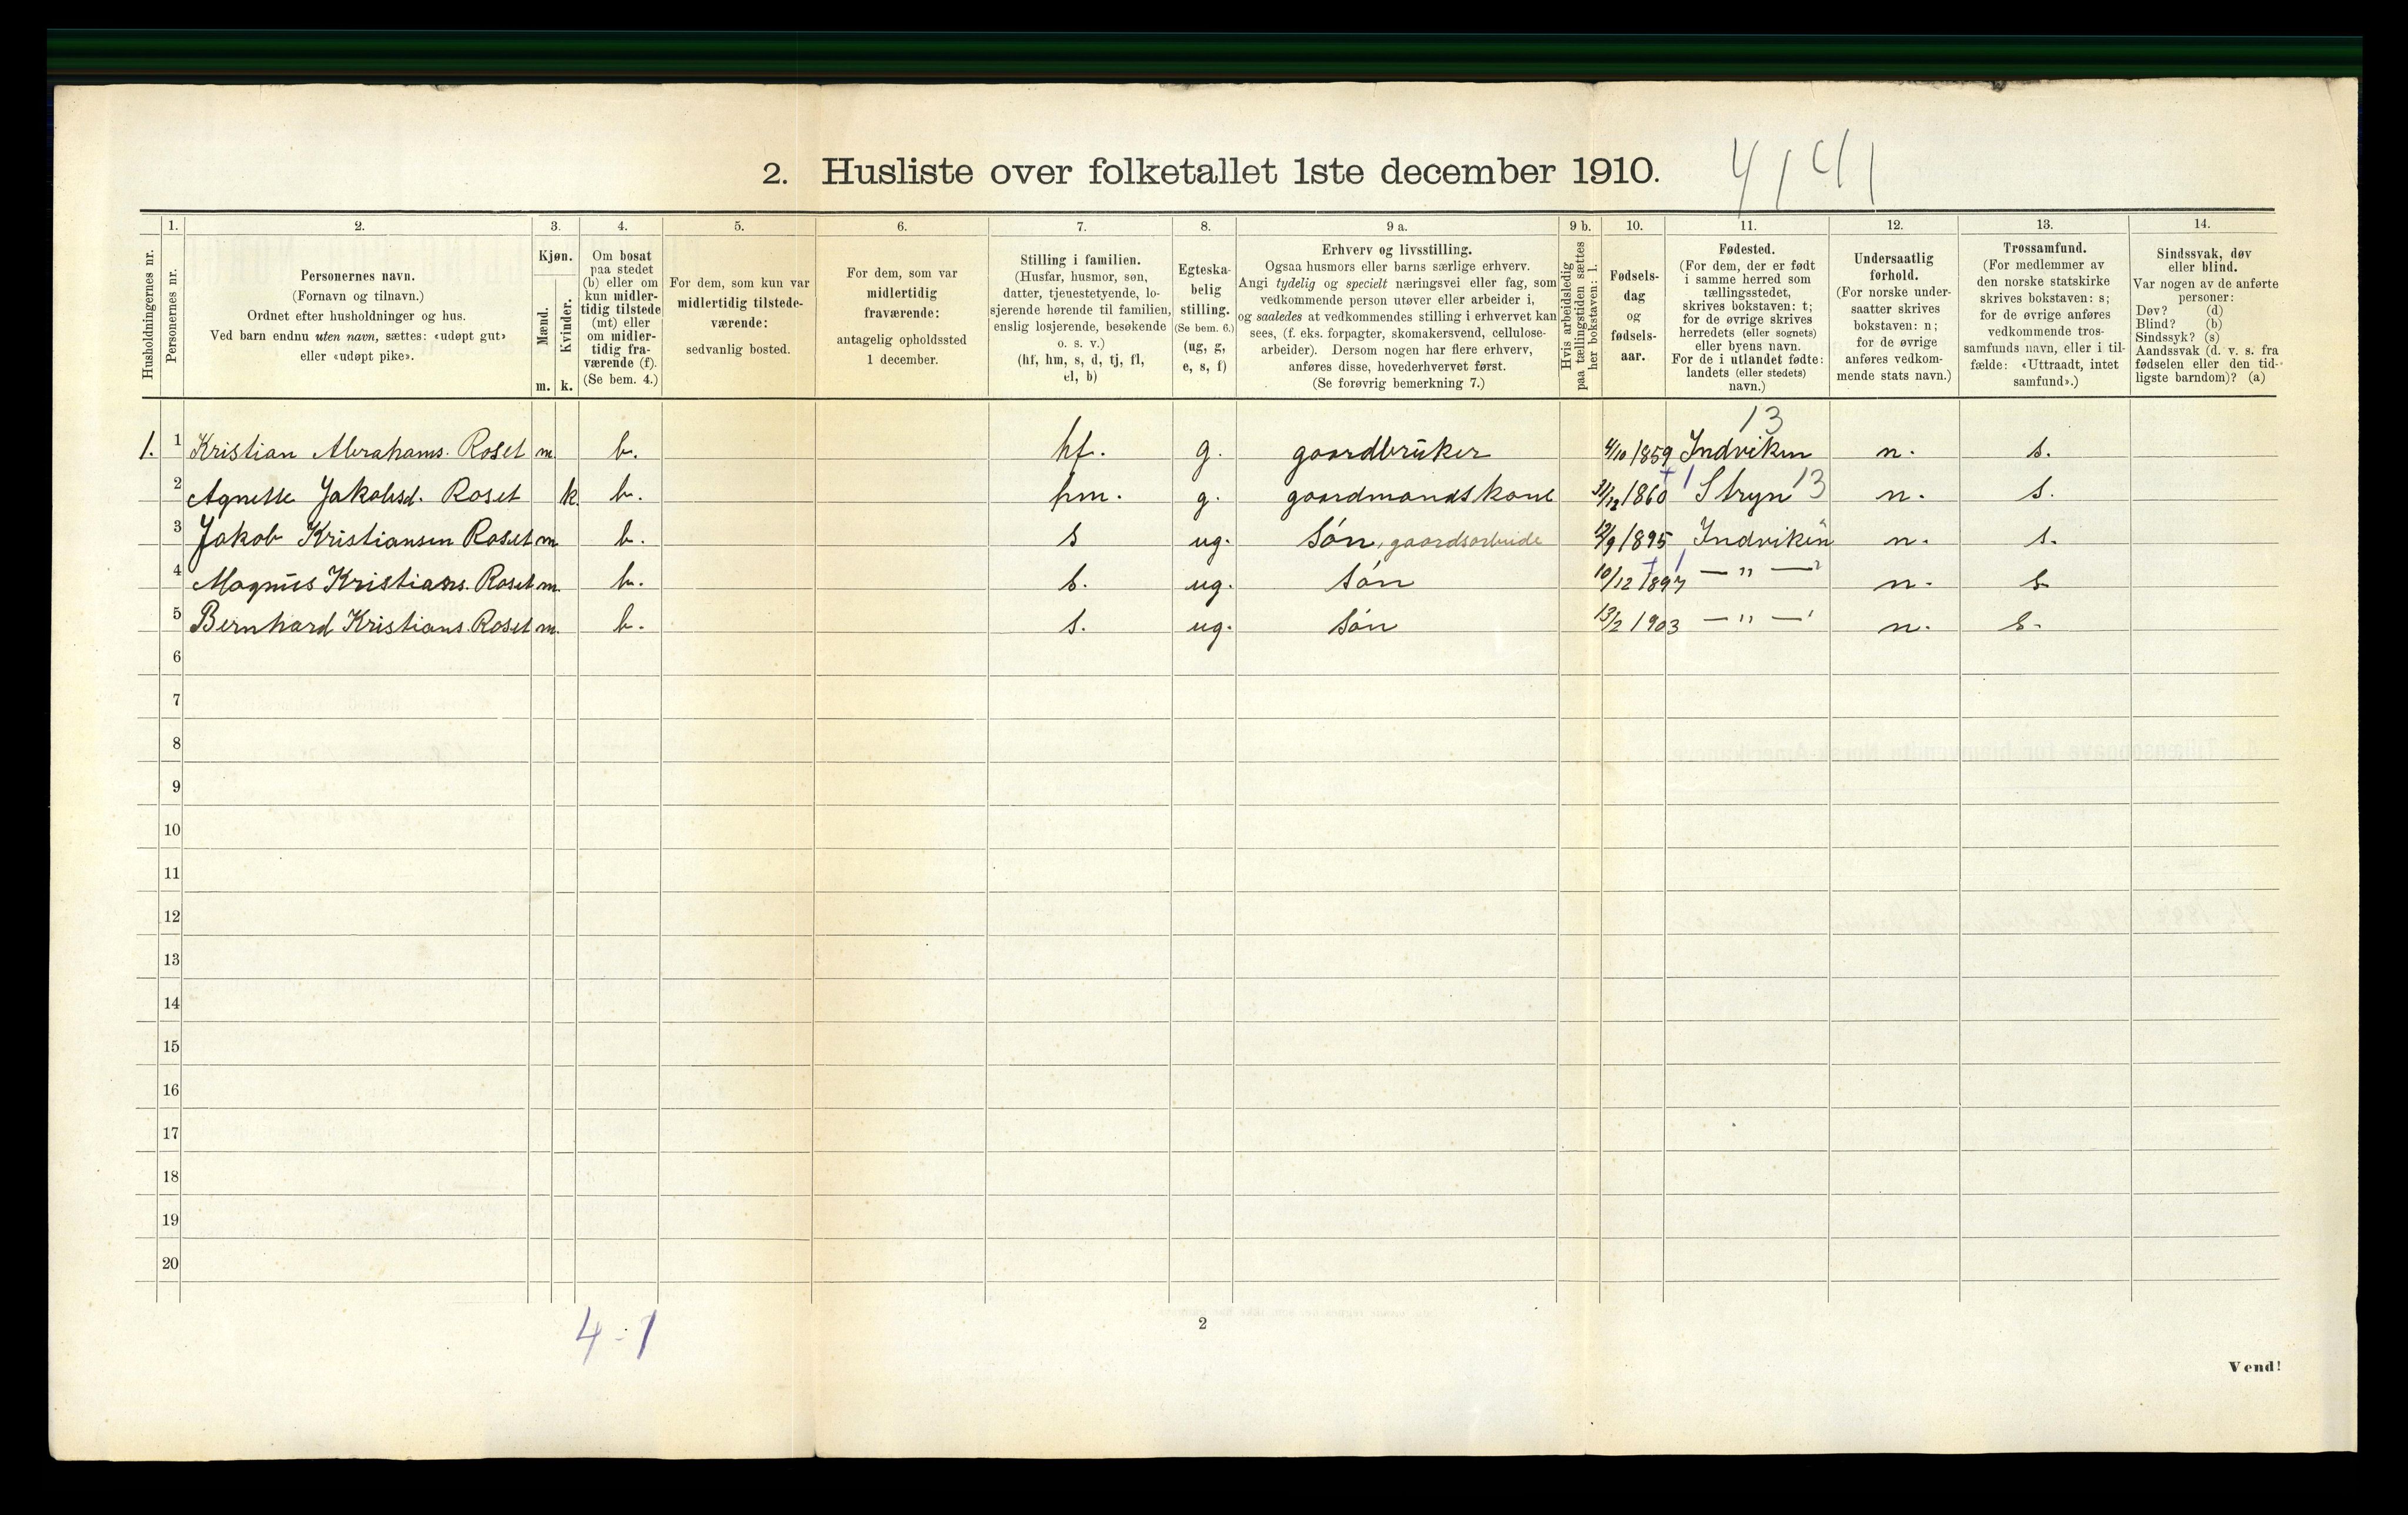 2. Husliste over folketallet 1ste december 1910.
4/41
Husholdningernes nr.
1.
Personernes nr.
2.
Personernes navn.
(Fornavn og tilnavn.)
Ordnet efter husholdninger og hus.
Ved barn endnu uten navn, sættes: «udøpt gut»
eller «udøpt pike».
3.
Kjøn.
Mænd.
m.
Kvinder.
k.
4.
Om bosat
paa stedet
(b) eller om
kun midler-
tidig tilstede
(mt) eller
om midler-
tidig fra-
værende (f).
(Se bem. 4.)
5.
For dem, som kun var
midlertidig tilstede-
værende:
sedvanlig bosted.
6.
For dem, som var
midlertidig
fraværende:
antagelig opholdssted
1 december.
7.
Stilling i familien.
(Husfar, husmor, søn,
datter, tjenestetyende, lo-
sjerende hørende til familien,
enslig losjerende, besøkende
o. s. v.)
(hf, hm, s, d, tj, fl,
el, b)
8.
Egteska-
belig
stilling.
(Se bem. 6.)
(ug, g,
e, s, f)
9 a.
Erhverv og livsstilling.
Ogsaa husmors eller barns særlige erhverv.
Angi tydelig og specielt næringsvei eller fag, som
vedkommende person utøver eller arbeider i,
og saaledes at vedkommendes stilling i erhvervet kan
sees, (f. eks. forpagter, skomakersvend, cellulose-
arbeider). Dersom nogen har flere erhverv,
anføres disse, hovederhvervet først.
(Se forøvrig bemerkning 7.)
9 b.
Hvis arbeidsledig
paa tællingstiden sættes
her bokstaven: l.
10.
Fødsels-
dag
og
fødsels-
aar.
11.
Fødested.
(For dem, der er født
i samme herred som
tællingsstedet,
skrives bokstaven: t;
for de øvrige skrives
herredets (eller sognets)
eller byens navn.
For de i utlandet fødte:
landets (eller stedets)
navn.)
12.
Undersaatlig
forhold.
(For norske under-
saatter skrives
bokstaven: n;
for de øvrige
anføres vedkom-
mende stats navn.)
13.
Trossamfund.
(For medlemmer av
den norske statskirke
skrives bokstaven: s;
for de øvrige anføres
vedkommende tros-
samfunds navn, eller i til-
fælde: «Uttraadt, intet
samfund».)
14.
Sindssvak, døv
eller blind.
Var nogen av de anførte
personer:
Døv? (d)
Blind? (b)
Sindssyk? (s)
Aandssvak (d. v. s. fra
fødselen eller den tid-
ligste barndom)? (a)
13
1. 1 Kristian Abrahams. Roset m. b. hf. g. gaardbruker 4/10 1859 Indviken n. s.
2 Agnette Jakobsd. Roset k. b. hm. g. gaardmandskone 31/12 1860 Stryn 13 n. s.
3 Jakob Kristiansen Roset m. b. s ug. søn, gaardsarbeide 12/9 1895 Indviken n. s.
4 Magnus Kristians. Roset m. b. s. ug. søn 10/12 1897 — " — n. s
5 Bernhard Kristians. Roset m. b. s. ug. søn 13/2 1903 — " — n. s.
6
7
8
9
10
11
12
13
14
15
16
17
18
19
20
4-1
2
Vend!